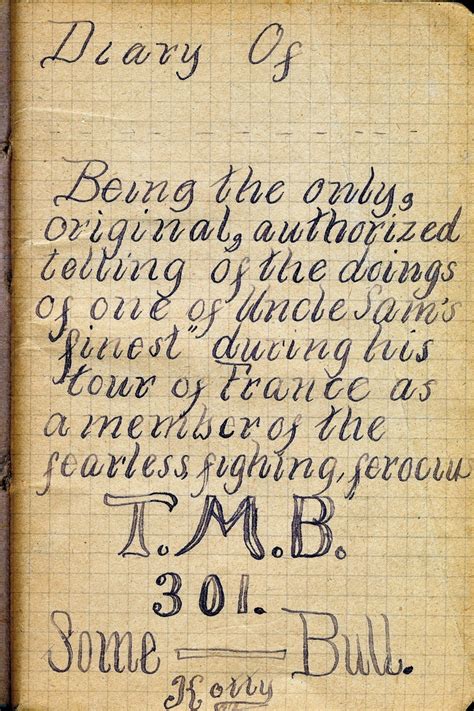 Diary Of
Being the only,
original, authorized
telling of the doings
of one of Uncle Sam's
finest" during his
tour of France as
a member of the
fearless, fighing, ferocius
T.M.B.
301.
Some — Bull.